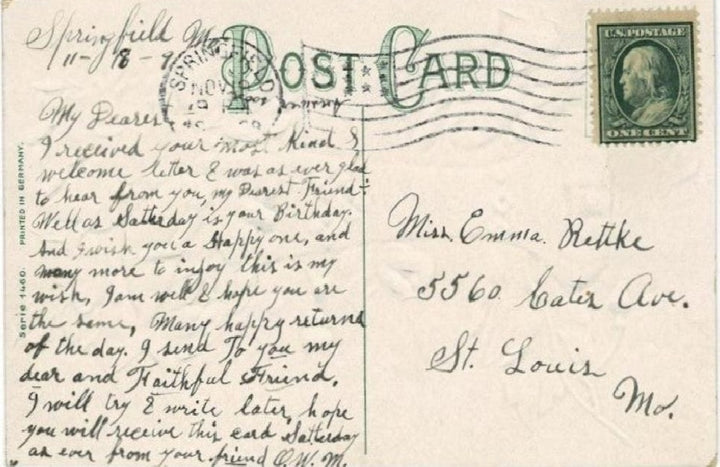 Springfield Mo.
11-
SPRINGFIELD
NOV
POST CARD
U.S. POSTAGE
ONE CENT
My Dearest
I received your most kind &
welcome letter & was as ever glad
to hear from you, my Dearest Friend
Well as Satterday is your Birthday.
And I wish you a Happy one, and
many more to injoy this is my
wish, I am well & hope you are
the same, Many happy returns
of the day. I send To you my
dear and Faithful Friend.
I will try & write later, hope
you will receive this card Satterday
as ever from your friend O.W.M.
Serie 1460. PRINTED IN GERMANY.
Miss. Emma. Rettke
5560 Cates Ave.
St. Louis
Mo.